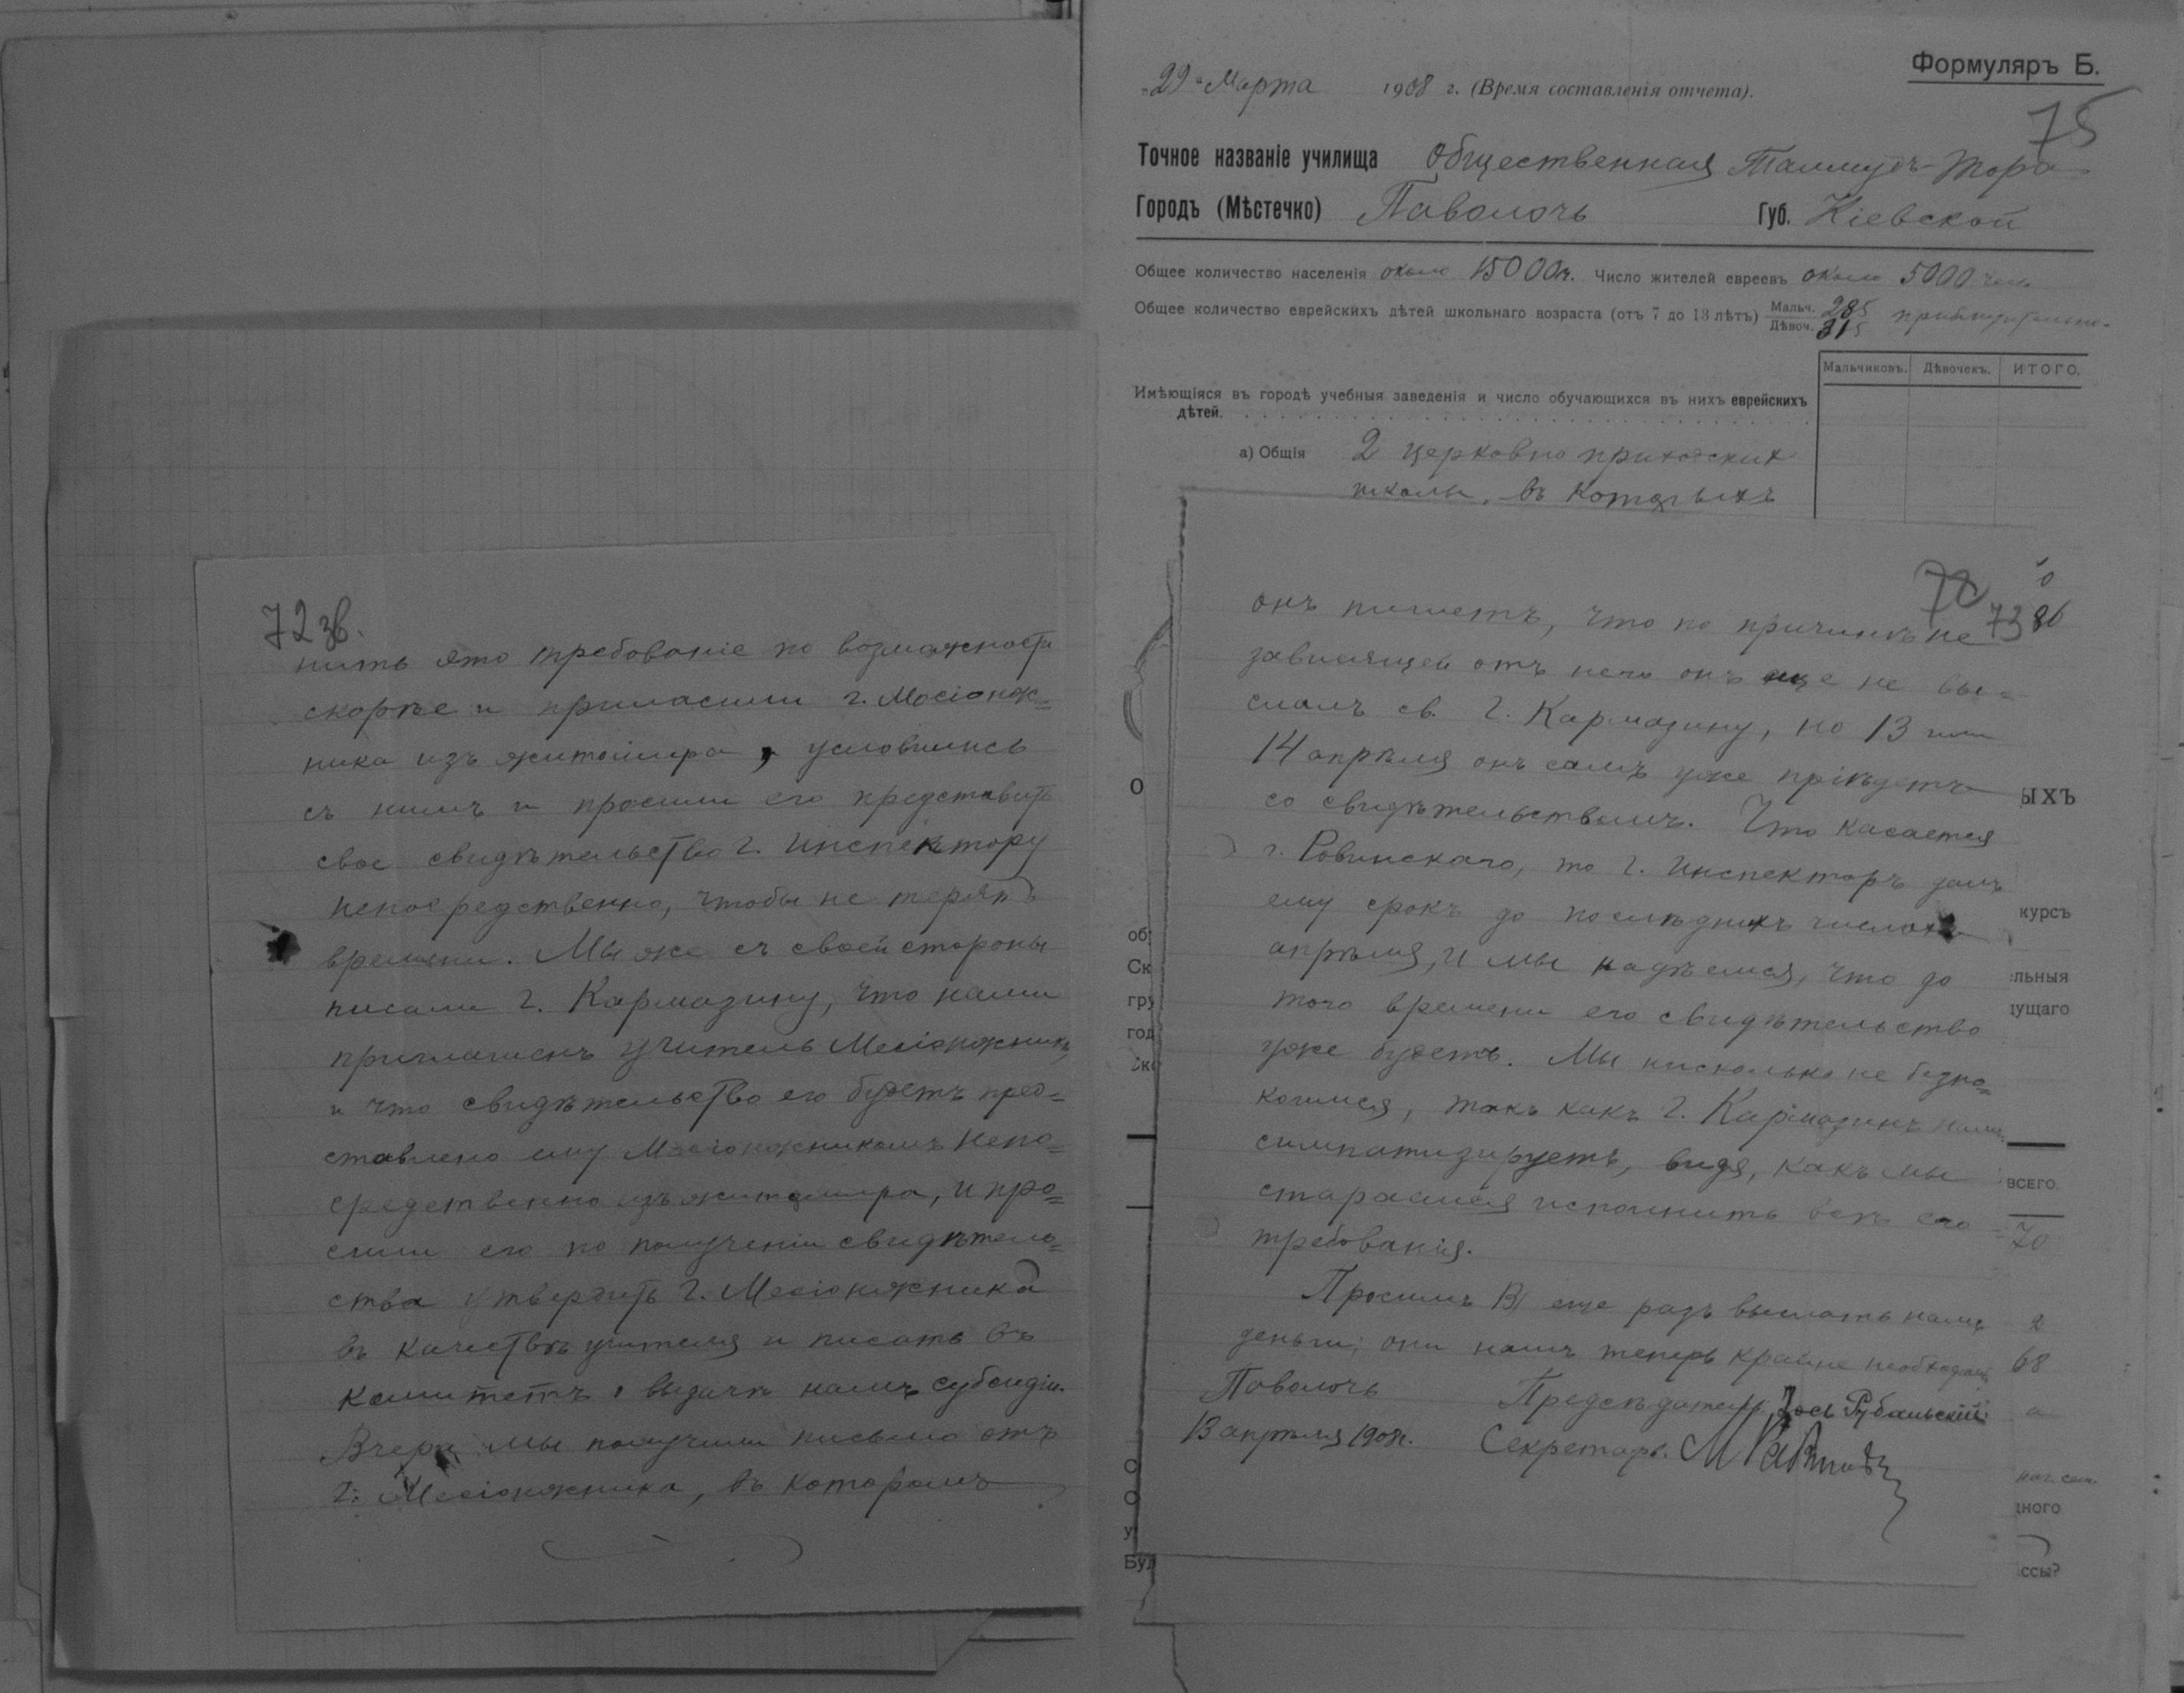 72 зв.
нить это требованіе по возможности
скорѣе и пригласили г. Месіонж=
ника изъ Житоміра, условились
съ нимъ и просили его представить
свое свидѣтельство г. Инспектору
непосредственно, чтобы не терять
времени. Мы же съ своей стороны
писали г. Кармазину, что нами
приглашенъ учитель Месіонжникъ,
и что свидѣтельство его будетъ пред=
ставлено ему Месіонжникомъ непо=
средственно изъ Житомира, и про=
сили его по полученіи свидѣтель=
ства утвердить г. Месіонжника
въ качествѣ учителя и писать въ
комитетъ о выдачѣ намъ субсидіи.
Вчера мы получили письмо отъ
г. Месіонжника, въ которомъ
Формуляръ Б.
"29" Марта 1908 г. (Время составленія отчета).
75
Точное названіе училища Общественная Талмудъ-Тора
Городъ (Мѣстечко) Паволочь Губ. Кіевской
Общее количество населенія около 15000 ч. Число жителей евреевъ около 5000 чел.
Общее количество еврейскихъ дѣтей школьнаго возраста (отъ 7 до 13 лѣтъ) Мальч. 285
Дѣвоч. 315 приблизительно.
Мальчиковъ. Дѣвочекъ. ИТОГО.
Имѣющіяся въ городѣ учебныя заведенія и число обучающихся въ нихъ еврейскихъ
дѣтей.
а) Общія 2 церковно приходских
школы, въ которыхъ
73
онъ пишетъ, что по причинѣ не
зависящей отъ него онъ еще не вы=
слалъ св. г. Кармазину, но 13 или
14 апрѣля онъ самъ уже пріѣдетъ
со свидѣтельствомъ. Что касается
г. Ровинскаго, то г. Инспекторъ далъ
ему срокъ до послѣднихъ числохъ
апрѣля, и мы надѣемся, что до
того времени его свидѣтельство
уже будетъ. Мы нисколько не безпо=
коимся, такъ какъ г. Кармазинъ намъ
симпатизируетъ, видя, какъ мы
стараемся исполнить всѣ его
требованія.
Просимъ В/ еще разъ выслать намъ
деньги; они намъ теперь крайне необходимы
Паволочь Предсѣдатель Іось Рубальскій
13 апрѣля 1908 г. Секретарь.
ЫХЪ
курсъ
льныя
дущаго
всего
70
2
68
а
дного
ссы?
О
об
Ск
гру
год
О
О
у
Буд